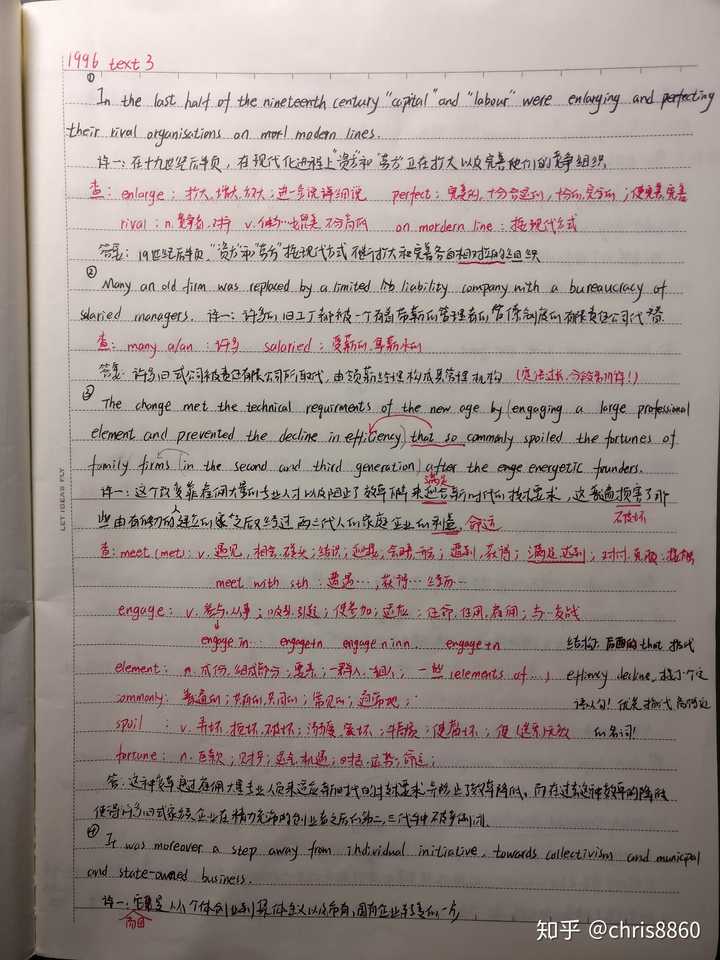 1996 text 3
①
In the last half of the nineteenth century "capital" and "labour" were enlarging and perfecting
their rival organisations on morl modern lines.
译一: 在十九世纪后半页, 在现代化进程上"资方"和"劳方"正在扩大以及完善他们的竞争组织
查: enlarge: 扩大, 增大, 放大; 进一步说详细说 perfect: 完善
rival: n. 竞争者, 对手 v. on mordern line: 按现代方式
答案: 19世纪后半页, "资方"和"劳方"按现代方式不断扩大和完善各自相对立的组织
②
Many an old firm was replaced by a limited lib liability company with a bureaucracy of
salaried managers. 译一: 许多的旧工厂都被一个有着有薪的管理者的官僚制度的有限责任公司代替.
查: many a/an: 许多 salaried: 受薪的,
答案: 许多旧式公司被责任有限公司所取代, 由领薪经理构成其管理机构
③
The change met the technical requirments of the new age by engaging a large professional
element and prevented the decline in efficiency that so commonly spoiled the fortunes of
family firms in the second and third generation after the enge energetic founders.
满足
译一: 这个改变靠雇佣大量的专业人才以及阻止了效率下降来迎合新时代的技术要求, 这普遍损害了那
些由有能力的人建立的家之后又经过两三代人的家庭企业的利益, 命运
不破坏
查: meet (met): v. 遇见, 相会, 碰头; 结识; 迎接; 满足达到
meet with sth: 遭遇…, 获得… 经历…
engage: v. 参与, 从事; 吸引, 引起; 使参加; 适应; 任命, 任用, 雇佣; 与…交战
engage in… engage+n engage n in n. engage+n
结构: 后面的 that 指代
element: n. 成份, 组成部分; 要素; 一群人, 一组人; 一些 (elements of …)
efficiency decline, 接了个定
commonly: 普遍的; 共有的, 共同的; 常见的; 通常地;
语从句! 优先指代离得近
的名词!
spoil: v. 弄坏, 损坏, 破坏;
fortune: n. 巨款; 财富; 运气, 机遇; 时机, 运势, 命运;
答: 这种变革通过雇佣大量专业人员来适应新时代的技术要求并防止了效率降低, 而在过去这种效率的降低
使得许多旧式家族企业在精力充沛的创业者之后的第二, 三代手中不破产倒闭.
④
It was moreover a step away from individual initiative, towards collectivism and municipal
and state-owned business.
译一: 从个体创业到集体主义以及市有, 国有企业
而且
LET IDEAS FLY
知乎 @chris8860